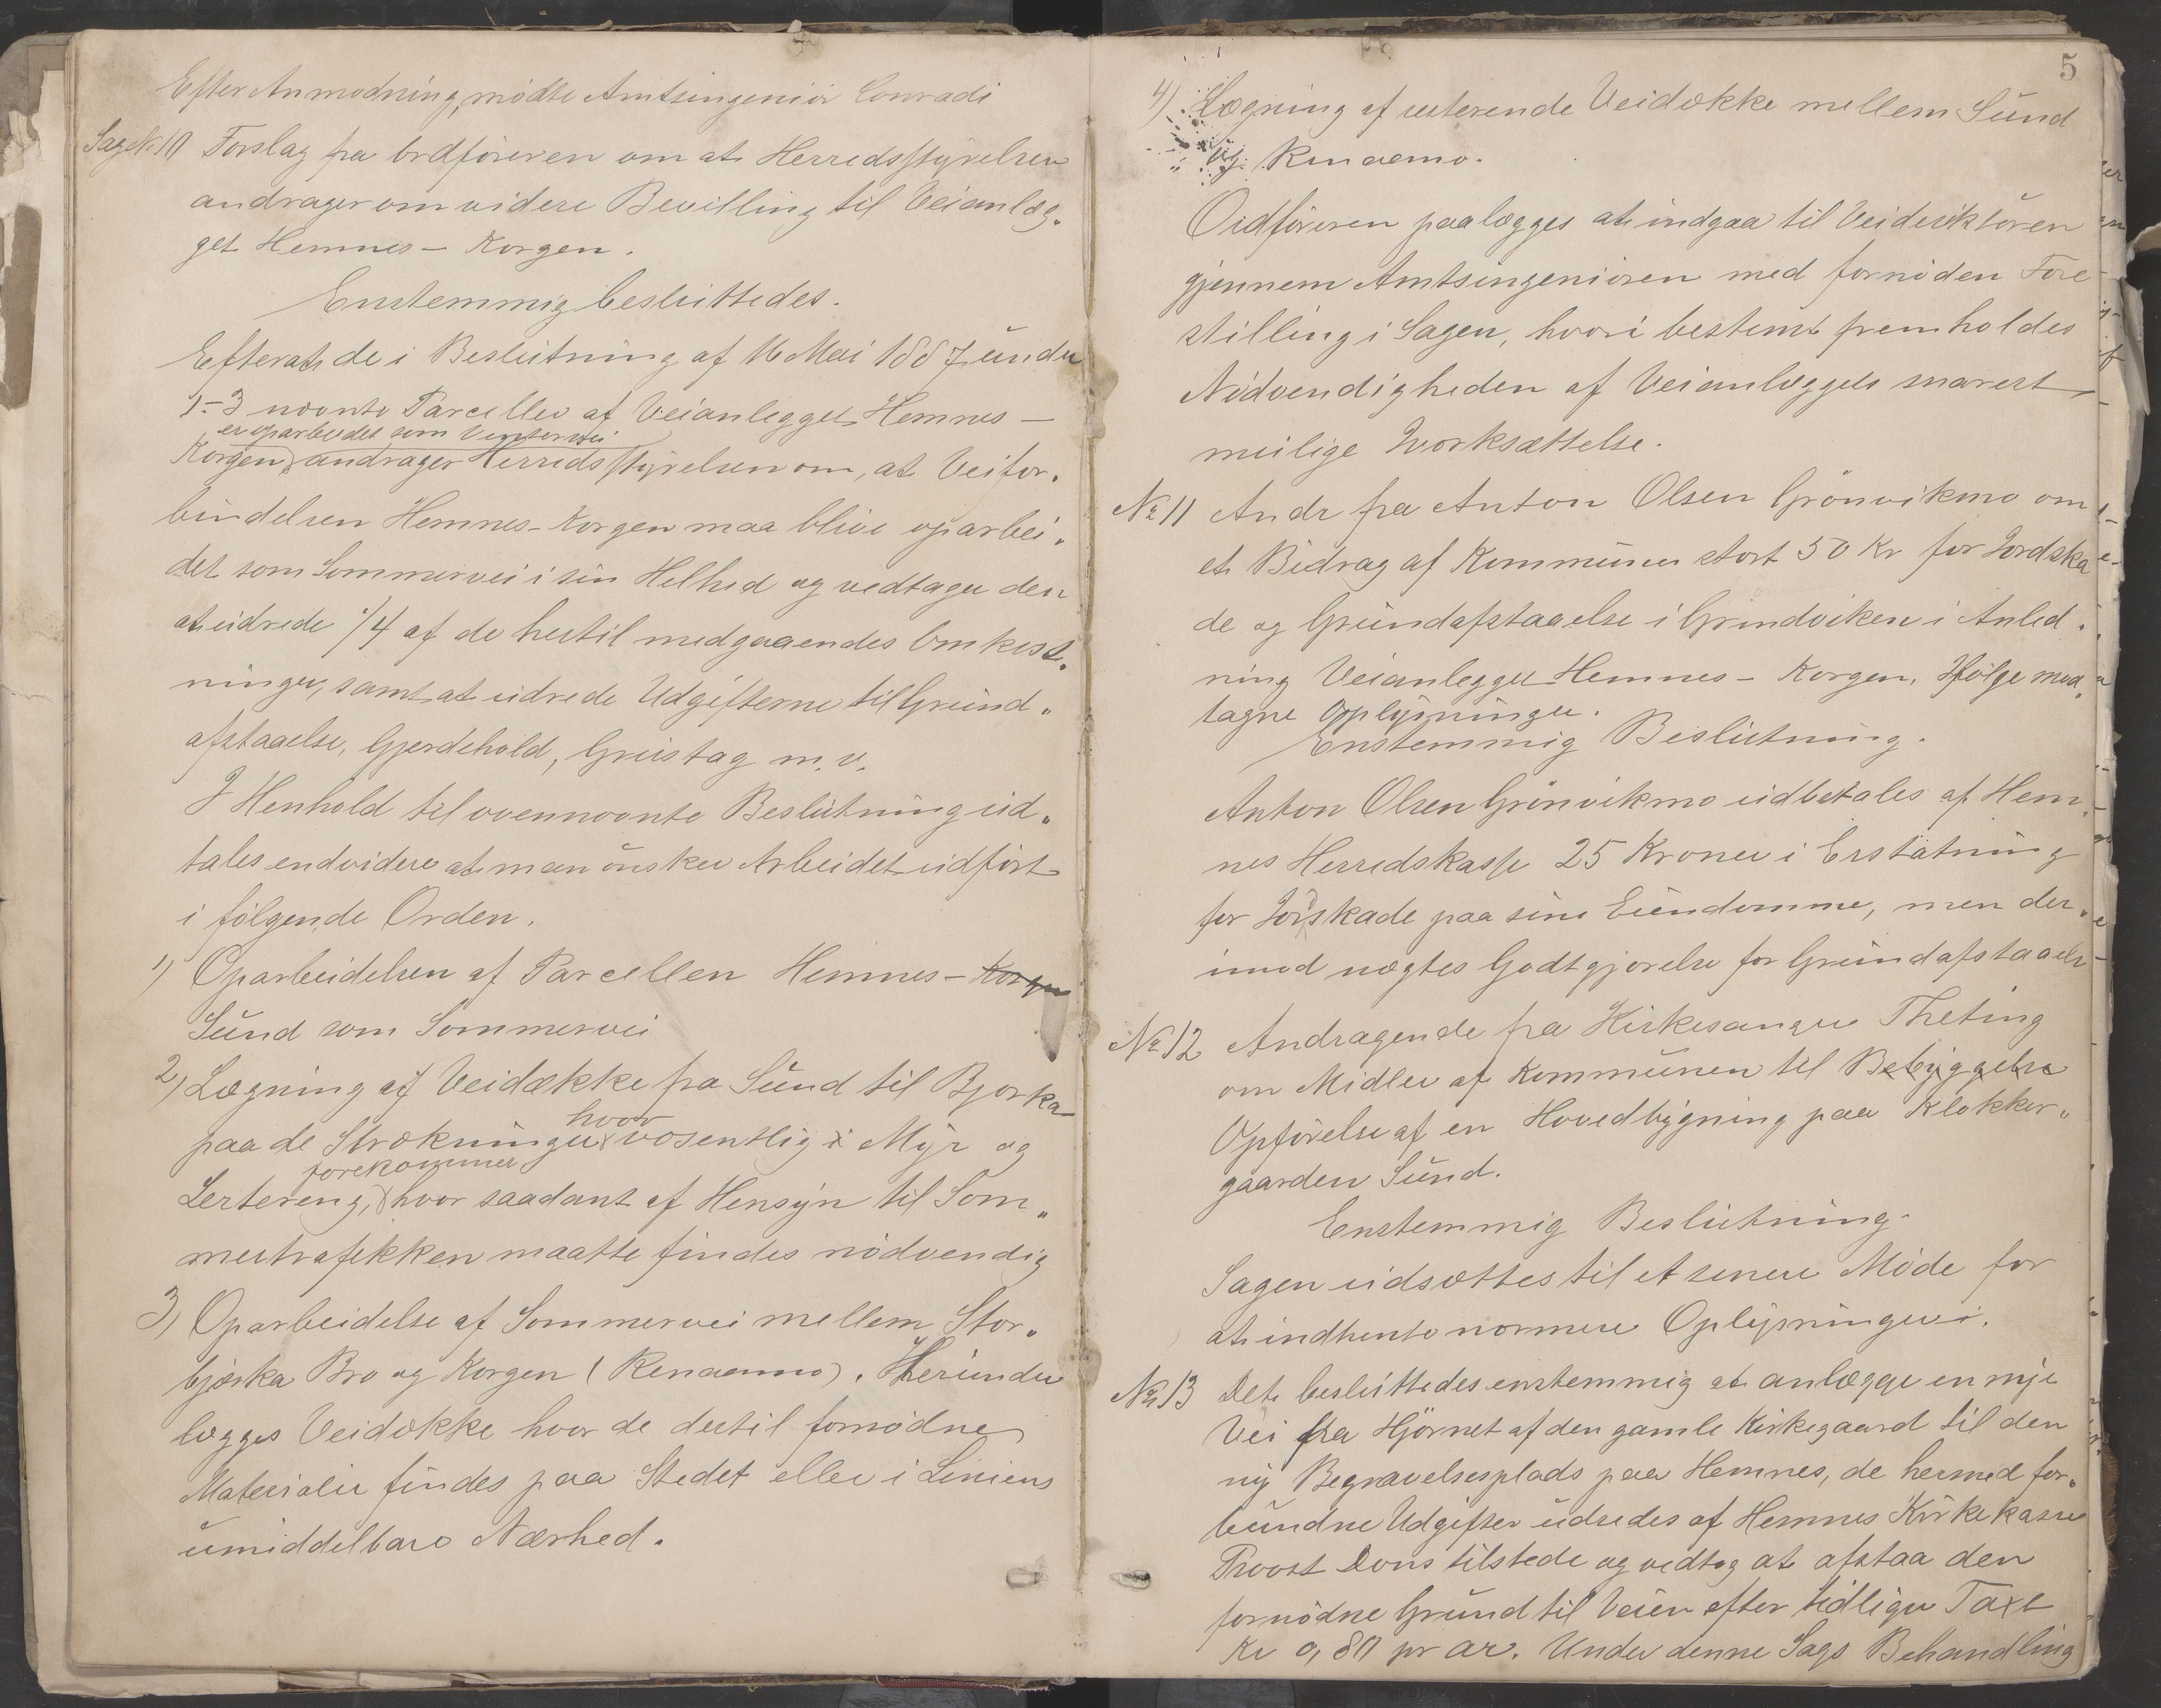 Efter Anmodning, mødte Amtsingeniør Conradi
Sag No 10 Forslag fra Ordføreren om at Herredsstyrelsen
andrager om videre Bevilling til Veianlæg„
get Hemnes – Korgen.
Enstemmig besluttedes.
Efterat de i Beslutning af 16 Mai 1887 under
1–3 nævnte Parceller af Veianlegget Hemnes –
er oparbeidet som Vintervei
Korgen, andrager Herredsstyrelsen om, at Veifor„
bindelsen Hemnes–Korgen maa blive oparbei„
det som Sommervei i sin Helhed og vedtager den
at udrede 1/4 af de hertil medgaaendes Omkost„
ninger, samt at udrede Udgifterne til Grund„
afstaaelse, Gjerdehold, Grustag m.v.
I Henhold til ovennævnte Beslutning ud„
tales endvidere at man ønsker Arbeidet udført
i følgende Orden.
1) Oparbeidelsen af Parcellen Hemnes – Korgen
Sund som Sommervei
2) Lægning af Veidække fra Sund til Bjørka
hvor
paa de Strækninger væsentlig i Myr og
forekommer
Lertereng, hvor saadant af Hensyn til Som„
mertrafikken maatte findes nødvendig
3) Oparbeidelse af Sommervei mellem Stor„
bjørka Bro og Korgen (Renaamo). Herunder
lægges Veidække hvor de dertil fornødne
Materialier findes paa Stedet eller i Liniens
umiddelbare Nærhed.
5
4) Lægning af resterende Veidække mellem Sund
og Renaamo.
Ordføreren paalægges at indgaa til Veidirektøren
gjennem Amtsingeniøren med fornøden Fore
stilling i Sagen, hvori bestemt fremholdes
Nødvendigheden af Veianlæggets snarest
meilige Iværksættelse.
No 11 Andr fra Anton Olsen Grønvikmo om
et Bidrag af Kommunen stort 50 Kr for Jordska
de og Grundafstaaelse i Grindviken i Anled„
ning Veianlegget Hemnes – Korgen. Ifølge mod„
tagne Oplysninger.
Enstemmig Beslutning.
Anton Olsen Grønvikmo udbetales af Hem„
nes Herredskasse 25 Kroner i Erstatning
for Jordskade paa sine Eiendomme, men der„
imod nægtes Godtgjørelse for Grundafstaaelse
No 12 Andragende fra Kirkesanger Theting
om Midler af Kommunen til Bebyggelse
Opførelse af en Hovedbygning paa Klokker„
gaarden Sund.
Enstemmig Beslutning.
Sagen udsættes til et senere Møde for
at indhente nærmere Oplysninger.
No 13 Det besluttedes enstemmig at anlægge en nye
Vei fra Hjørnet af den gamle Kirkegaard til den
ny Begravelsesplads paa Hemnes, de hermed for„
bundne Udgifter udredes af Hemnes Kirkekasse
Provst Dons tilstede og vedtog at afstaa den
fornødne Grund til Veien efter tidligere Taxt
Kr 0,80 pr ar. Under denne Sags Behandling